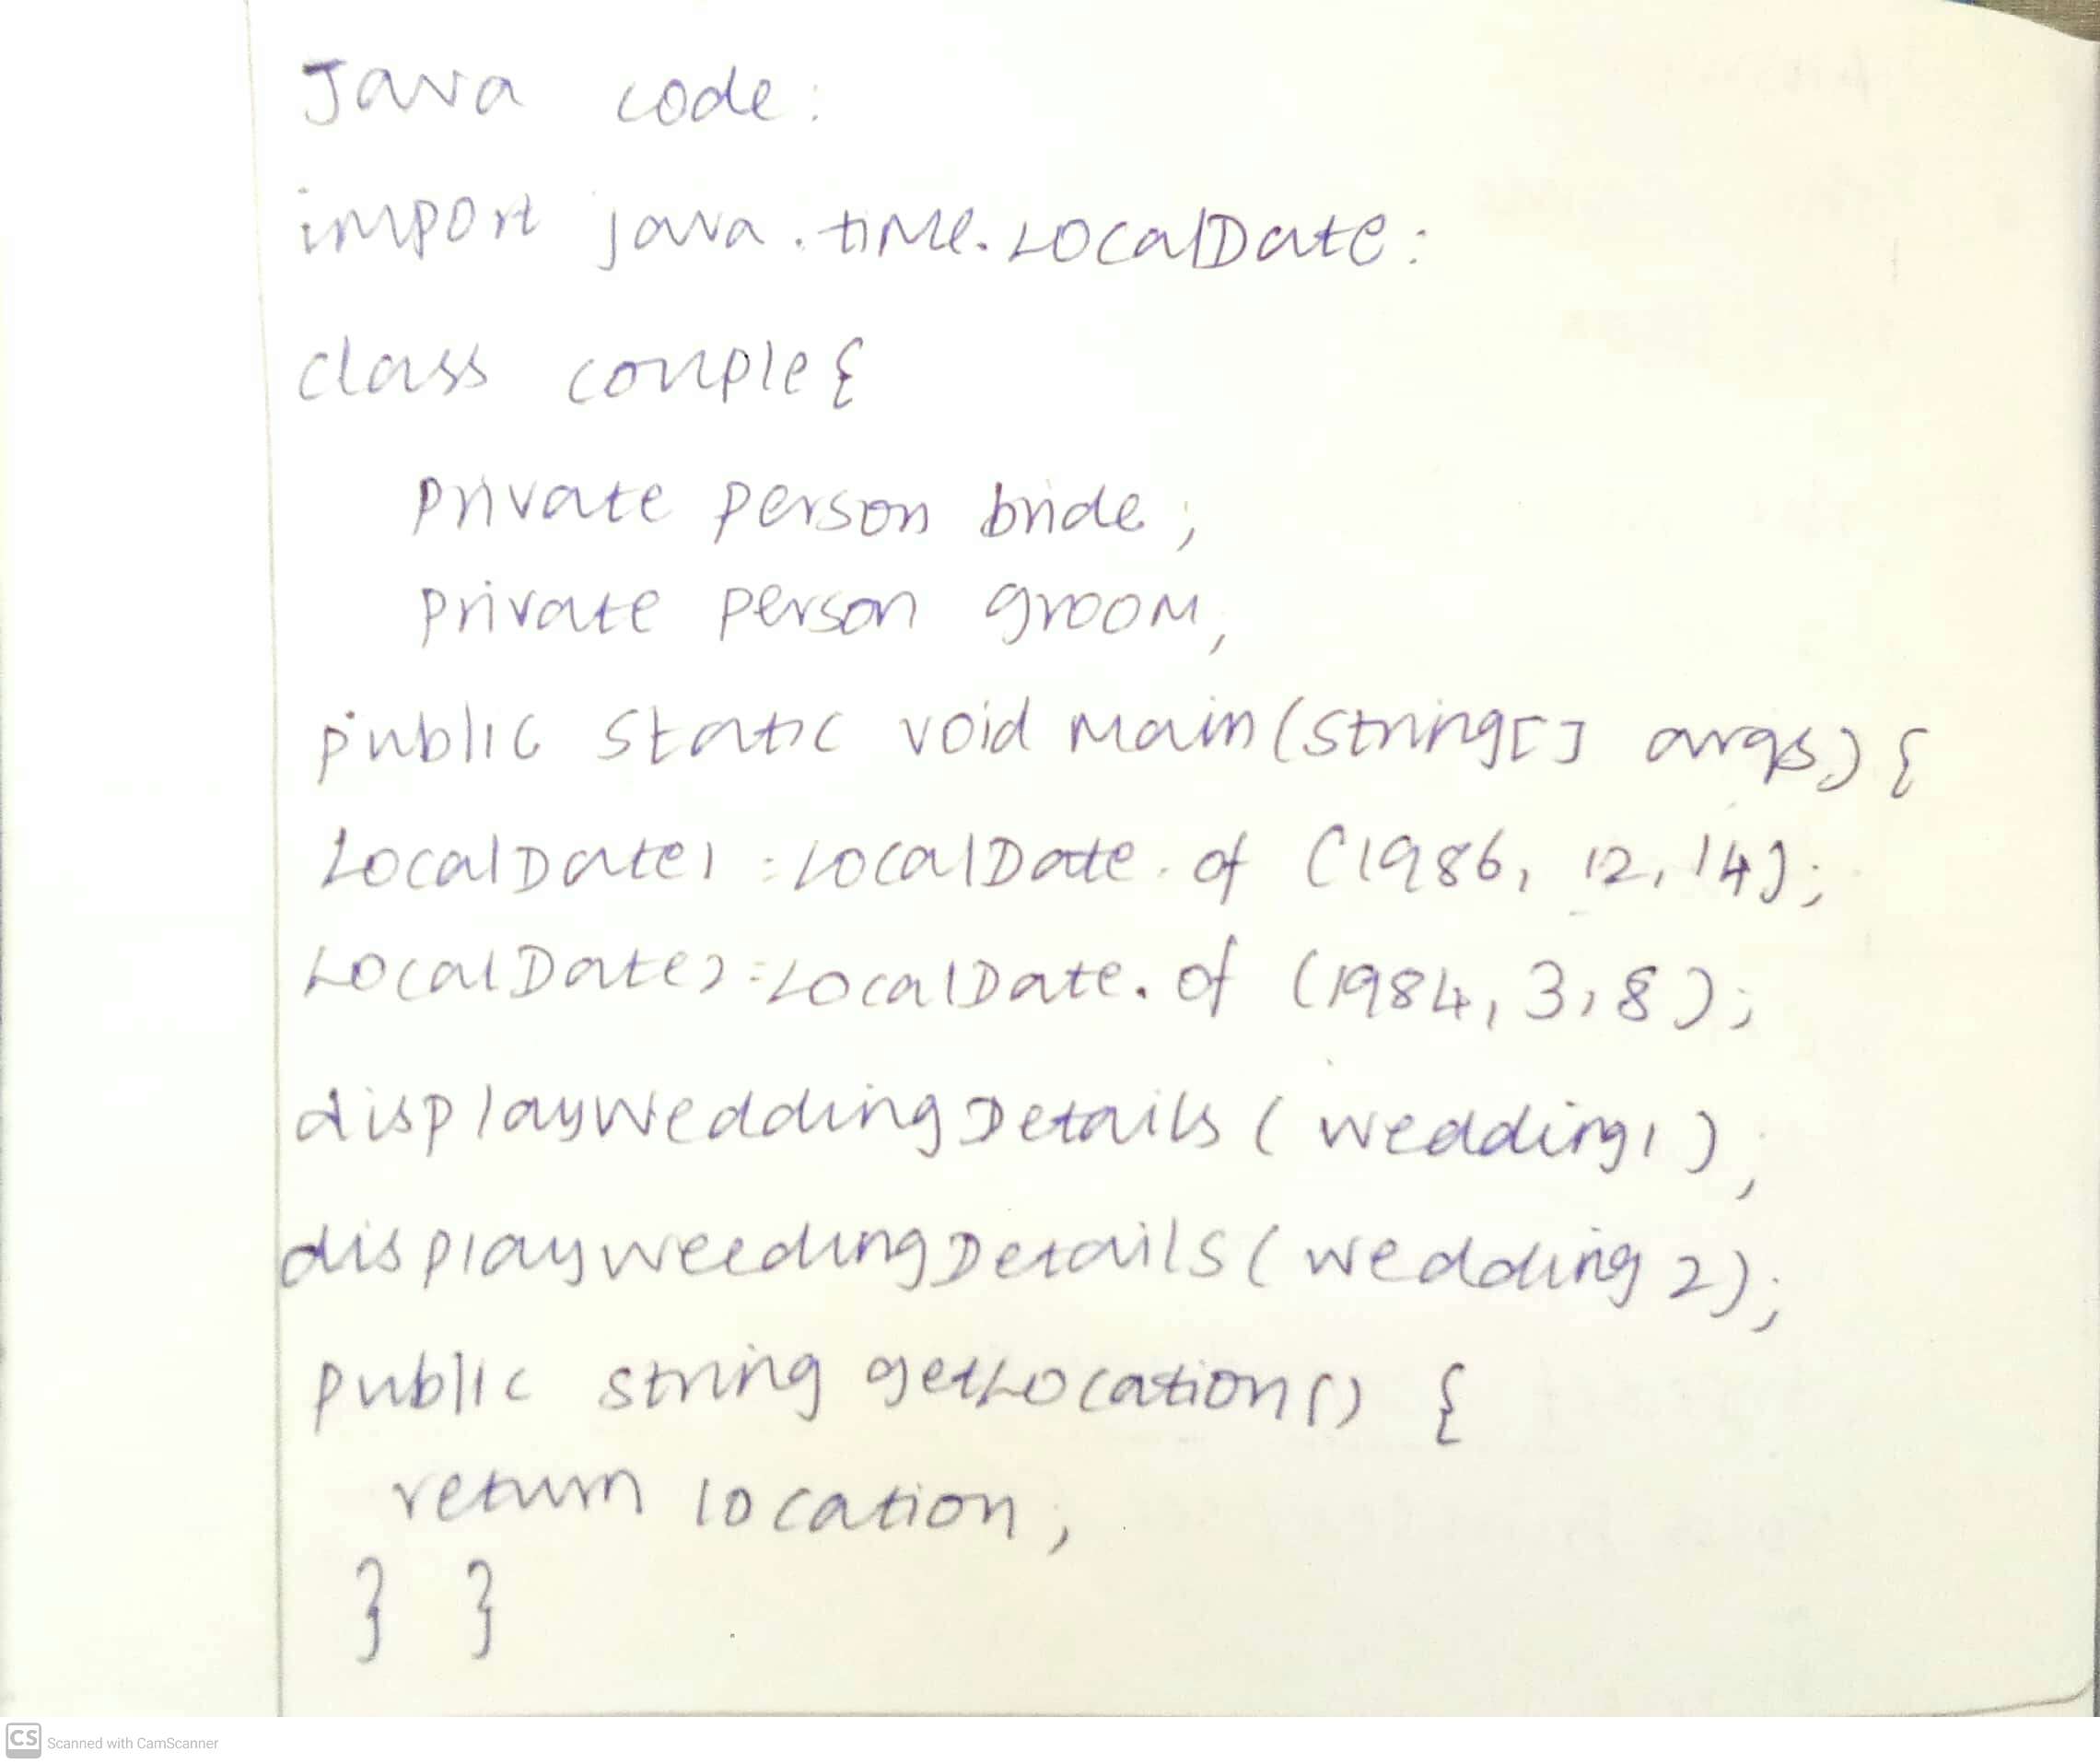 Java code:
import java.time.LocalDate:
class couple{
private person bride;
private person groom,
public static void main(string[] args) {
LocalDate1 = LocalDate.of (1986, 12, 14);
LocalDate2 = LocalDate.of (1984, 3, 8);
displayWeddingDetails (wedding1),
displayweedingDetails (wedding 2);
public string getLocation() {
return location;
} }
CS Scanned with CamScanner